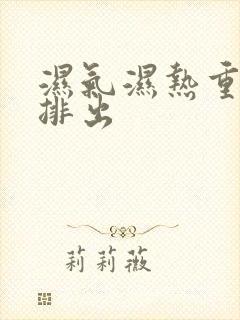 濕氣濕熱重
排出
莉莉薇